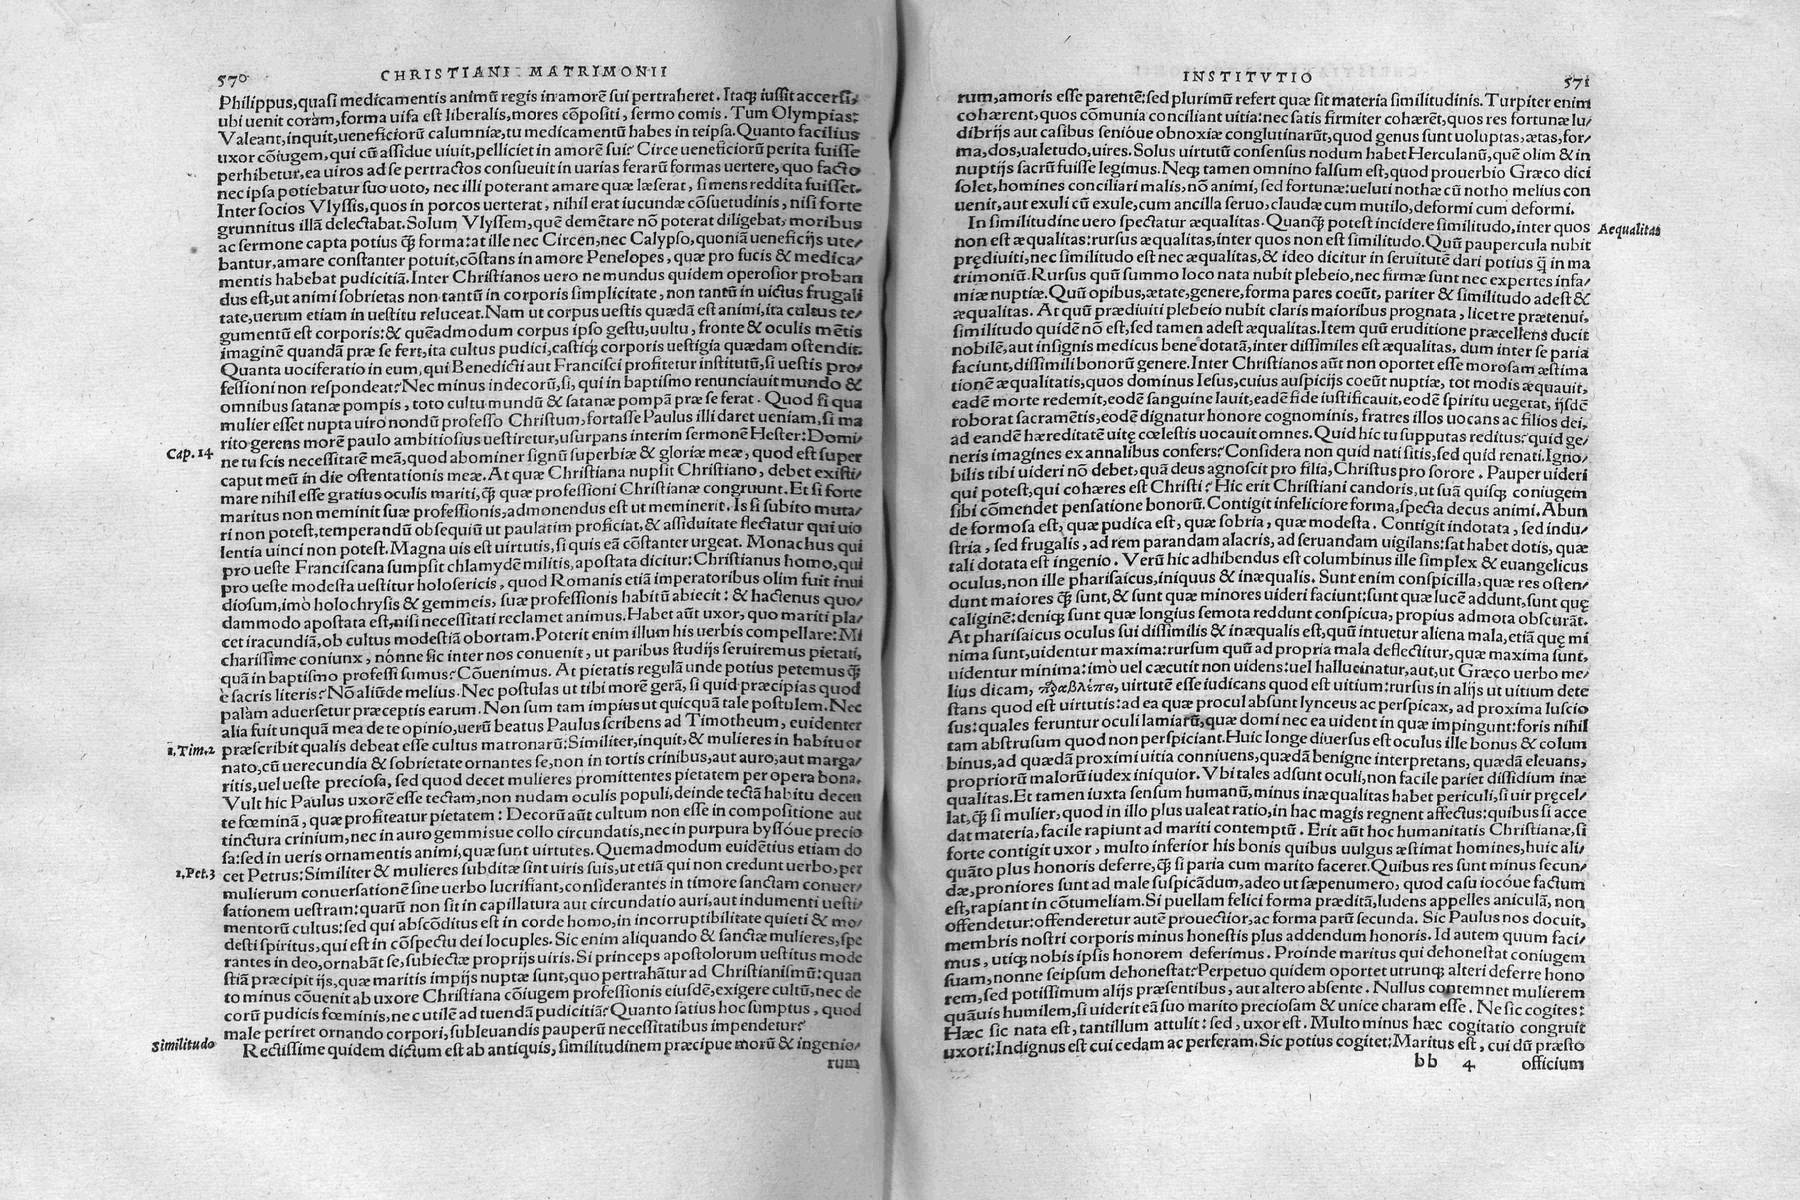 570 CHRISTIANI MATRIMONII
Philippus,quasi medicamentis animū regis in amorē sui pertraheret. Itaq; iussit accersi,
ubi uenit coràm,forma uisa est liberalis,mores cōpositi, sermo comis. Tum Olympias:
Valeant,inquit,ueneficiorū calumniæ,tu medicamentū habes in teipsa.Quanto facilius
uxor cōiugem,qui cū assidue uiuit,pelliciet in amorē sui? Circe ueneficiorū perita fuisse
perhibetur,ea uiros ad se pertractos consueuit in uarias ferarū formas uertere, quo facto
nec ipsa potiebatur suo uoto, nec illi poterant amare quæ læserat, si mens reddita fuisset.
Inter socios Vlyssis,quos in porcos uerterat, nihil erat iucundæ cōsuetudinis, nisi forte
grunnitus illā delectabat.Solum Vlyssem,quē demētare nō poterat diligebat, moribus
ac sermone capta potius q̄ forma:at ille nec Circen,nec Calypso,quoniā ueneficijs ute/
bantur,amare constanter potuit,cōstans in amore Penelopes, quæ pro fucis & medica/
mentis habebat pudicitiā.Inter Christianos uero ne mundus quidem operosior proban
dus est,ut animi sobrietas non tantū in corporis simplicitate, non tantū in uictus frugali
tate,uerum etiam in uestitu reluceat.Nam ut corpus uestis quædā est animi,ita cultus te/
gumentū est corporis:& quēadmodum corpus ipso gestu,uultu, fronte & oculis mētis
imaginē quandā præ se fert,ita cultus pudici,castiq; corporis uestigia quædam ostendit.
Quanta uociferatio in eum, qui Benedicti aut Francisci profitetur institutū,si uestis pro/
fessioni non respondeat?Nec minus indecorū,si, qui in baptismo renunciauit mundo &
omnibus satanæ pompis, toto cultu mundū & satanæ pompā præ se ferat. Quod si qua
mulier esset nupta uiro nondū professo Christum,fortasse Paulus illi daret ueniam,si ma
rito gerens morē paulo ambitiosius uestiretur,usurpans interim sermonē Hester: Domi/
Cap.14
ne tu scis necessitatē meā,quod abominer signū superbiæ & gloriæ meæ, quod est super
caput meū in die ostentationis meæ.At quæ Christiana nupsit Christiano, debet existi/
mare nihil esse gratius oculis mariti,q̄ quæ professioni Christianæ congruunt.Et si forte
maritus non meminit suæ professionis,admonendus est ut meminerit. Is si subito muta/
ri non potest,temperandū obsequiū ut paulatim proficiat,& assiduitate flectatur qui uio
lentia uinci non potest.Magna uis est uirtutis,si quis eā cōstanter urgeat. Monachus qui
pro ueste Franciscana sumpsit chlamydē militis,apostata dicitur: Christianus homo,qui
pro ueste modesta uestitur holosericis, quod Romanis etiā imperatoribus olim fuit inui
diosum,imò holochrysis & gemmeis, suæ professionis habitū abiecit: & hactenus quo/
dammodo apostata est,nisi necessitati reclamet animus.Habet aūt uxor, quo mariti pla/
cet iracundiā,ob cultus modestiā obortam.Poterit enim illum his uerbis compellare:Mi
charissime coniunx, nónne sic inter nos conuenit, ut paribus studijs seruiremus pietati,
quā in baptismo professi sumus? Cōuenimus. At pietatis regulā unde potius petemus q̄
è sacris literis? Nō aliūde melius.Nec postulas ut tibi morē gerā, si quid præcipias quod
palàm aduersetur præceptis earum. Non sum tam impius ut quicquā tale postulem. Nec
alia fuit unquā mea de te opinio,uerū beatus Paulus scribens ad Timotheum, euidenter
1.Tim.2
præscribit qualis debeat esse cultus matronarū:Similiter,inquit,& mulieres in habitu or
nato,cū uerecundia & sobrietate ornantes se,non in tortis crinibus,aut auro,aut marga/
ritis,uel ueste preciosa, sed quod decet mulieres promittentes pietatem per opera bona.
Vult hic Paulus uxorē esse tectam,non nudam oculis populi,deinde tectā habitu decen
te fœminā, quæ profiteatur pietatem: Decorū aūt cultum non esse in compositione aut
tinctura crinium,nec in auro gemmisue collo circundatis,nec in purpura byssóue precio
sa:sed in ueris ornamentis animi,quæ sunt uirtutes.Quemadmodum euidētius etiam do
1.Pet.3
cet Petrus:Similiter & mulieres subditæ sint uiris suis,ut etiā qui non credunt uerbo,per
mulierum conuersationē sine uerbo lucrifiant,considerantes in timore sanctam conuer/
sationem uestram:quarū non sit in capillatura aut circundatio auri,aut indumenti uesti/
mentorū cultus:sed qui abscōditus est in corde homo,in incorruptibilitate quieti & mo/
desti spiritus,qui est in cōspectu dei locuples.Sic enim aliquando & sanctæ mulieres,spe
rantes in deo,ornabāt se,subiectæ proprijs uiris.Si princeps apostolorum uestitus mode
stiā præcipit ijs,quæ maritis impijs nuptæ sunt,quo pertrahātur ad Christianismū:quan
to minus cōuenit ab uxore Christiana cōiugem professionis eiusdē,exigere cultū,nec de
corū pudicis fœminis,nec utilē ad tuendā pudicitiā?Quanto satius hoc sumptus, quod
male periret ornando corpori,subleuandis pauperū necessitatibus impendetur?
Similitudo
Rectissime quidem dictum est ab antiquis,similitudinem præcipue morū & ingenio/
rum
INSTITVTIO 571
rum,amoris esse parentē:sed plurimū refert quæ sit materia similitudinis.Turpiter enim
cohærent,quos cōmunia conciliant uitia:nec satis firmiter cohærēt,quos res fortunæ lu/
dibrijs aut casibus senióue obnoxiæ conglutinarūt,quod genus sunt uoluptas,ætas,for/
ma,dos,ualetudo,uires. Solus uirtutū consensus nodum habet Herculanū,quē olim & in
nuptijs sacrū fuisse legimus.Neq; tamen omnino falsum est,quod prouerbio Græco dici
solet,homines conciliari malis,nō animi, sed fortunæ:ueluti nothæ cū notho melius con
uenit,aut exuli cū exule,cum ancilla seruo,claudæ cum mutilo,deformi cum deformi.
In similitudine uero spectatur æqualitas.Quanq̄ potest incidere similitudo,inter quos
Aequalitas
non est æqualitas:rursus æqualitas,inter quos non est similitudo.Quū paupercula nubit
prędiuiti,nec similitudo est nec æqualitas,& ideo dicitur in seruitutē dari potius q̄ in ma
trimoniū.Rursus quū summo loco nata nubit plebeio,nec firmæ sunt nec expertes infa/
miæ nuptiæ.Quū opibus,ætate,genere,forma pares coeūt, pariter & similitudo adest &
æqualitas. At quū prædiuiti plebeio nubit claris maioribus prognata, licet re prætenui,
similitudo quidē nō est,sed tamen adest æqualitas.Item quū eruditione præcellens ducit
nobilē,aut insignis medicus bene dotatā,inter dissimiles est æqualitas, dum inter se paria
faciunt,dissimili bonorū genere.Inter Christianos aūt non oportet esse morosam æstima
tionē æqualitatis,quos dominus Iesus,cuius auspicijs coeūt nuptiæ, tot modis æquauit,
eadē morte redemit,eodē sanguine lauit,eadē fide iustificauit,eodē spiritu uegetat, ijsdē
roborat sacramētis,eodē dignatur honore cognominis, fratres illos uocans ac filios dei,
ad eandē hæreditatē uitę cœlestis uocauit omnes.Quid hic tu supputas reditus? quid ge/
neris imagines ex annalibus confers? Considera non quid nati sitis,sed quid renati.Igno/
bilis tibi uideri nō debet,quā deus agnoscit pro filia,Christus pro sorore . Pauper uideri
qui potest,qui cohæres est Christi? Hic erit Christiani candoris,ut suā quisq; coniugem
sibi cōmendet pensatione bonorū.Contigit infeliciore forma,specta decus animi.Abun
de formosa est, quæ pudica est, quæ sobria, quæ modesta. Contigit indotata, sed indu/
stria, sed frugalis, ad rem parandam alacris, ad seruandam uigilans:sat habet dotis, quæ
tali dotata est ingenio. Verū hic adhibendus est columbinus ille simplex & euangelicus
oculus,non ille pharisaicus,iniquus & inæqualis.Sunt enim conspicilla,quæ res osten/
dunt maiores q̄ sunt,& sunt quæ minores uideri faciunt:sunt quæ lucē addunt,sunt quę
caliginē:deniq; sunt quæ longius semota reddunt conspicua, propius admota obscurāt.
At pharisaicus oculus sui dissimilis & inæqualis est,quū intuetur aliena mala,etiā quę mi
nima sunt,uidentur maxima:rursum quū ad propria mala deflectitur,quæ maxima sūnt,
uidentur minima:imò uel cæcutit non uidens:uel hallucinatur,aut,ut Græco uerbo me/
lius dicam, παραβλέπει, uirtutē esse iudicans quod est uitium:rursus in alijs ut uitium dete
stans quod est uirtutis:ad ea quæ procul absunt lynceus ac perspicax, ad proxima luscio
sus:quales feruntur oculi lamiarū,quæ domi nec ea uident in quæ impingunt:foris nihil
tam abstrusum quod non perspiciant.Huic longe diuersus est oculus ille bonus & colum
binus,ad quædā proximi uitia conniuens,quædā benigne interpretans, quædā eleuans,
propriorū malorū iudex iniquior. Vbi tales adsunt oculi,non facile pariet dissidium inæ
qualitas.Et tamen iuxta sensum humanū,minus inæqualitas habet periculi,si uir pręcel/
lat,q̄ si mulier,quod in illo plus ualeat ratio,in hac magis regnent affectus:quibus si acce
dat materia,facile rapiunt ad mariti contemptū. Erit aūt hoc humanitatis Christianæ,si
forte contigit uxor, multo inferior his bonis quibus uulgus æstimat homines,huic ali/
quāto plus honoris deferre,q̄ si paria cum marito faceret.Quibus res sunt minus secun/
dæ,proniores sunt ad male suspicādum,adeo ut sæpenumero, quod casu iocóue factum
est,rapiant in cōtumeliam.Si puellam felici forma præditā,ludens appelles aniculā, non
offendetur:offenderetur autē prouectior,ac forma parū secunda. Sic Paulus nos docuit,
membris nostri corporis minus honestis plus addendum honoris. Id autem quum faci/
mus, utiq; nobis ipsis honorem deferimus. Proinde maritus qui dehonestat coniugem
suam,nonne seipsum dehonestat?Perpetuo quidem oportet utrunq; alteri deferre hono
rem,sed potissimum alijs præsentibus, aut altero absente. Nullus contemnet mulierem
quāuis humilem,si uiderit eā suo marito preciosam & unice charam esse . Ne sic cogites:
Hæc sic nata est, tantillum attulit: sed, uxor est. Multo minus hæc cogitatio congruit
uxori:Indignus est cui cedam ac perferam.Sic potius cogitet:Maritus est, cui dū præsto
bb 4 officium